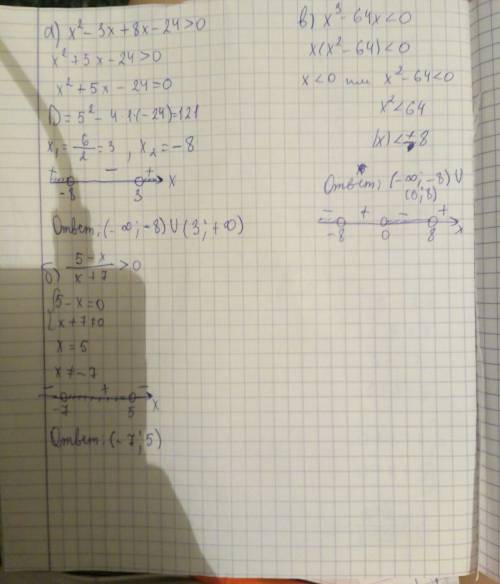 а) x² - 3x + 8x - 24 > 0
x² + 5x - 24 > 0
x² + 5x - 24 = 0
D = 5² - 4·1·(-24) = 121
x₁ = 6/2 = 3 , x₂ = -8
+ - + x
-8 3
Ответ: (-∞; -8) ∪ (3; +∞)
б) (5 - x)/(x + 7) > 0
{5 - x = 0
{x + 7 ≠ 0
x = 5
x ≠ -7
- + - x
-7 5
Ответ: (-7; 5)
в) x³ - 64x < 0
x(x² - 64) < 0
x < 0 или x² - 64 < 0
x² < 64
(x) < ±8
Ответ: (-∞; -8) ∪
(0; 8)
- + - + x
-8 0 8